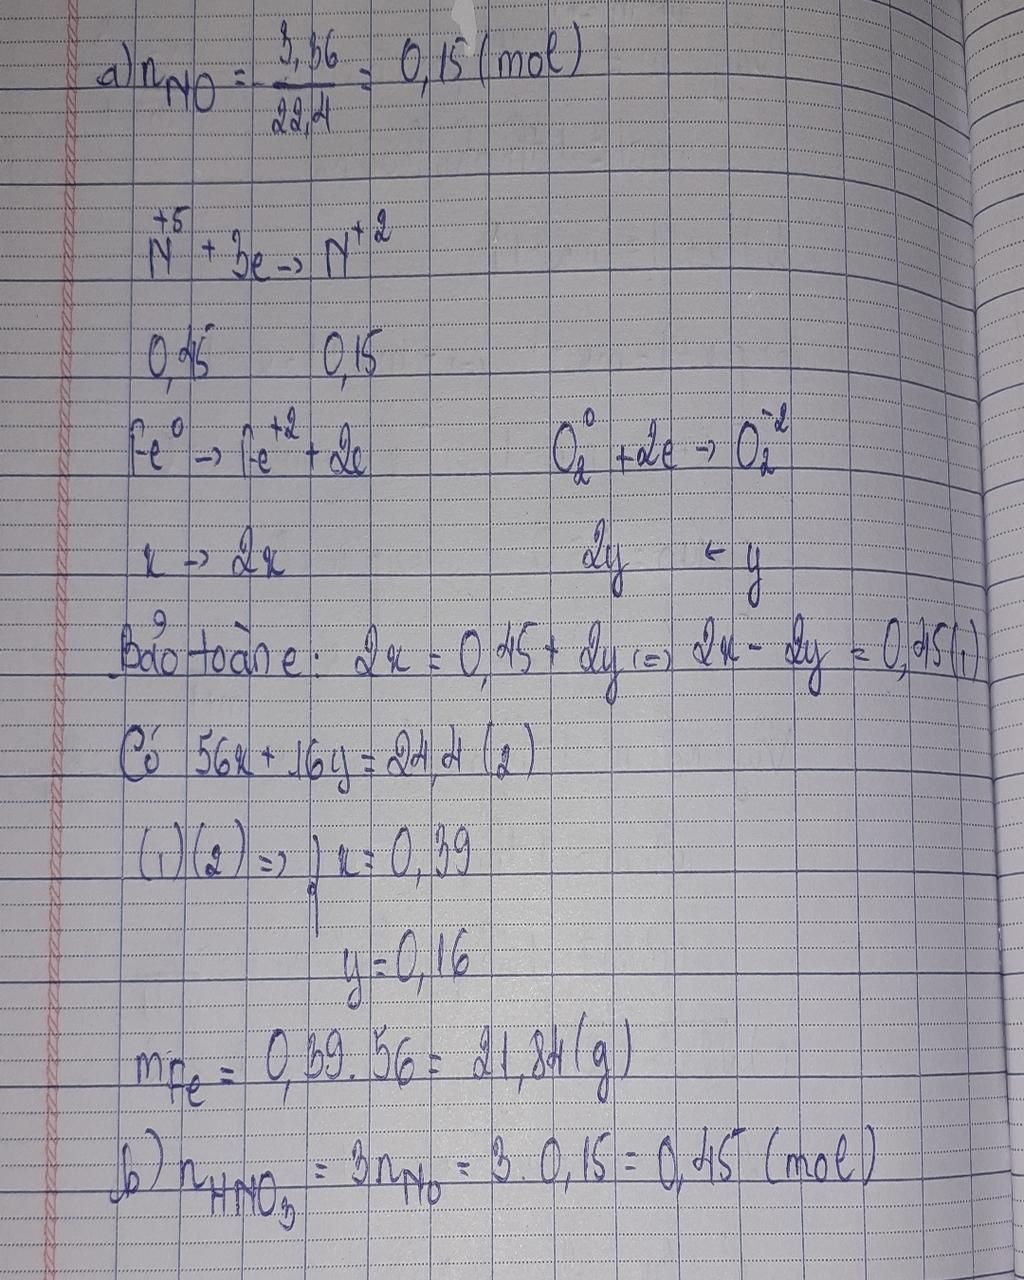 a) nNO = 3,36/22,4 = 0,15 (mol)
N⁺⁵ + 3e → N⁺²
0,45 0,15
Fe⁰ → Fe⁺² + 2e O₂⁰ + 2e → O₂⁻²
x → 2x 2y ← y
Bảo toàn e: 2x = 0,45 + 2y (=) 2x - 2y = 0,45 (1)
Có 56x + 16y = 24,4 (2)
(1)(2) => { x = 0,39
y = 0,16
mFe = 0,39.56 = 21,84 (g)
b) nHNO₃ = 3nNO = 3.0,15 = 0,45 (mol)